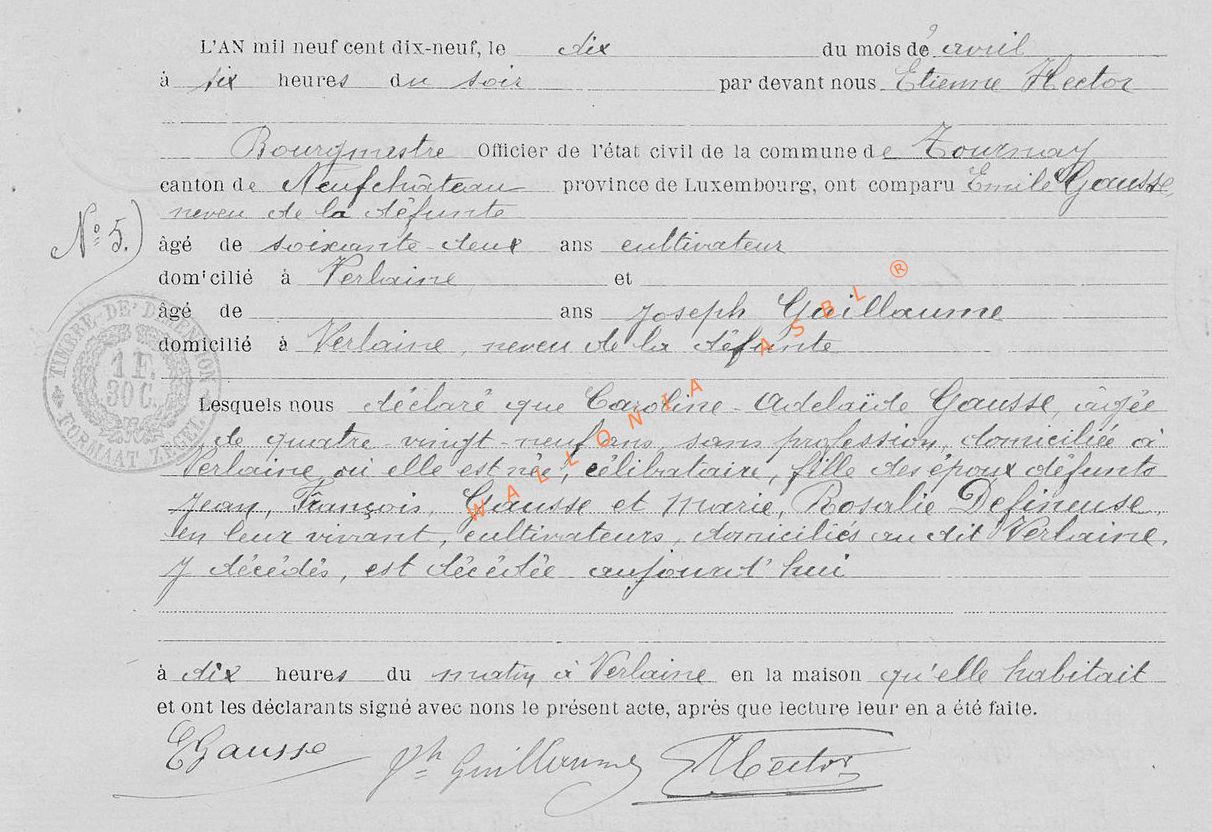 L'AN mil neuf cent dix-neuf, le dix du mois de avril
à six heures du soir par devant nous Etienne Hector
Bourgmestre Officier de l'état civil de la commune de Tournay
canton de Neufchâteau province de Luxembourg, ont comparu Emile Gausse,
neveu de la défunte
N° 5.
âgé de soixante-deux ans cultivateur
domicilié à Verlaine et
âgé de ans Joseph Guillaume
domicilié à Verlaine, neveu de la défunte
TIMBRE DE DIMENSION
1 F. 30 C.
FORMAAT ZEGEL
Lesquels nous déclaré que Caroline-Adelaïde Gausse, âgée
de quatre-vingt-neuf ans, sans profession, domiciliée à
Verlaine, où elle est née, célibataire, fille des époux défunts
Jean, François, Gausse et Marie, Rosalie Defineuse,
en leur vivant, cultivateurs, domiciliés au dit Verlaine,
y décédés, est décédée aujourd'hui
à dix heures du matin à Verlaine en la maison qu'elle habitait
et ont les déclarants signé avec nons le présent acte, après que lecture leur en a été faite.
EGausse Jph Guillaume EHector
WALLONIA ASBL ®